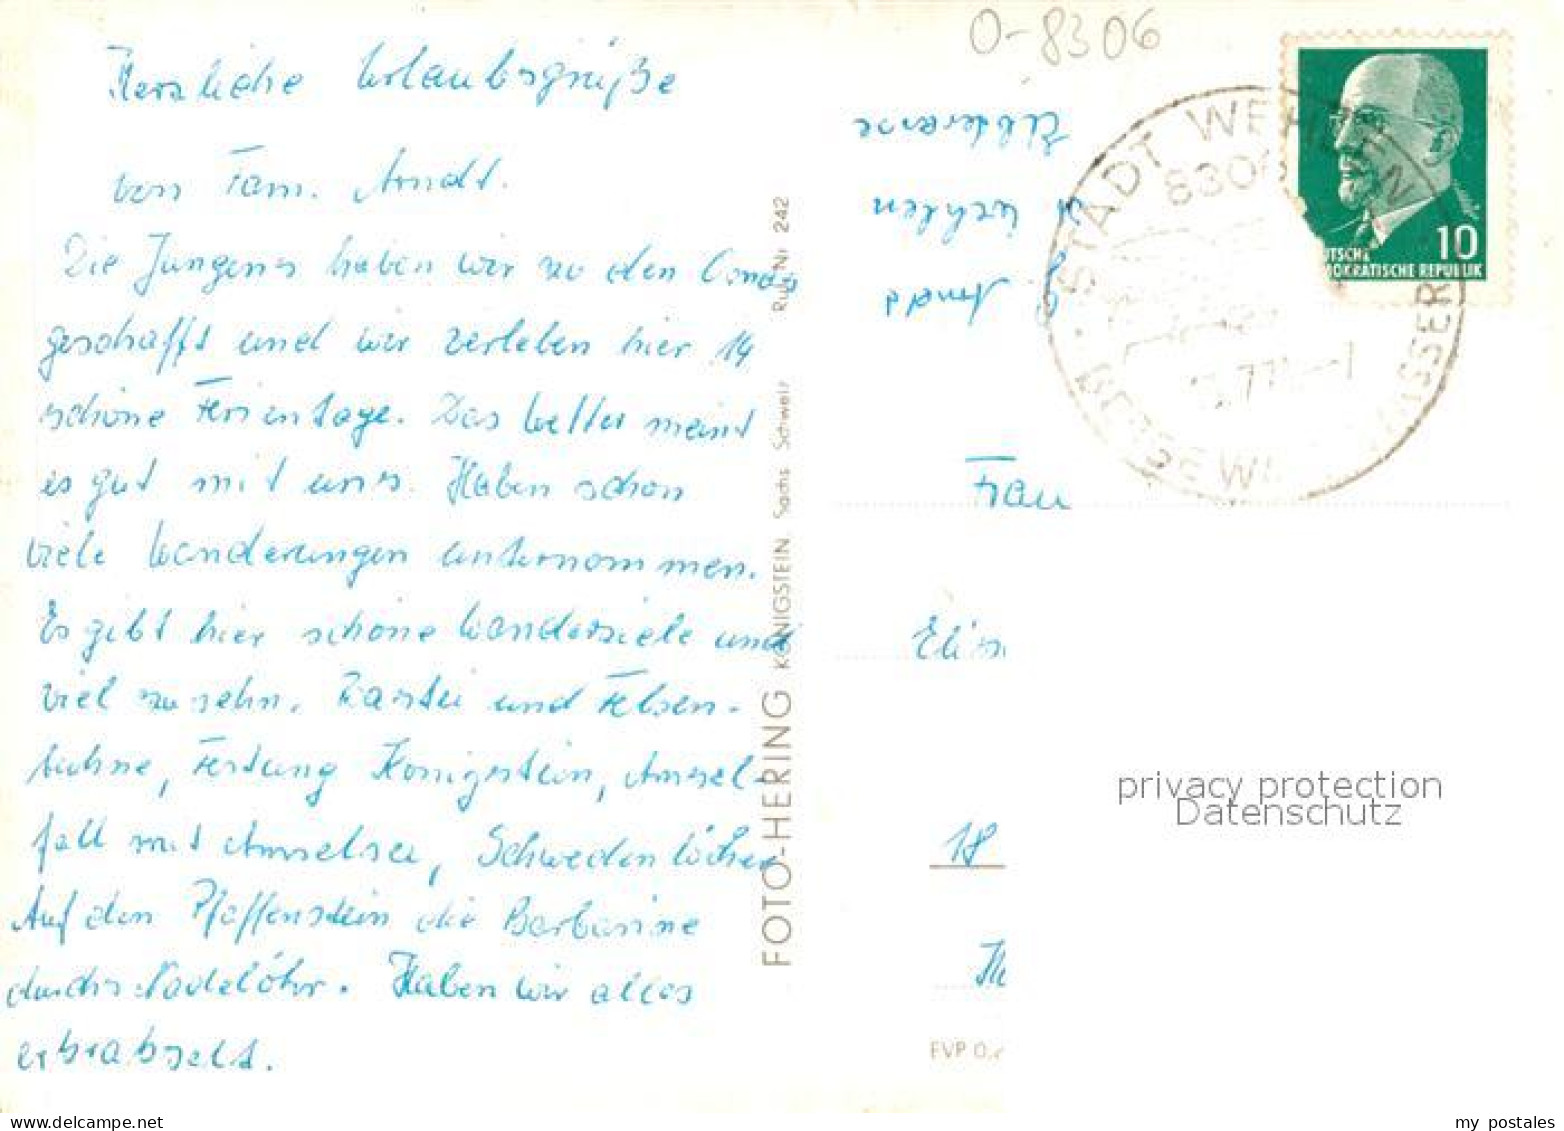 O-8306
Herzliche Urlaubsgrüße
von Fam. Arndt.
Die Jungens haben wir zu den Omas
geschafft und wir verleben hier 14
schöne Ferientage. Das Wetter meint
es gut mit uns. Haben schon
viele Wanderungen unternommen.
Es gibt hier schöne Wanderziele und
viel zu sehn. Bastei und Felsen-
bühne, Festung Königstein, Amsel-
fall mit Amselsee, Schwedenlöcher
Auf den Pfaffenstein die Barbarine
durchs Nadelöhr. Haben wir alles
erkrabselt.
FOTO-HERING KÖNIGSTEIN, Sächs. Schweiz Ruf Nr. 242
Arndt
STADT WEHLEN
8306
10
DEUTSCHE
DEMOKRATISCHE REPUBLIK
Frau
18
EVP 0,
privacy protection
Datenschutz
my postales